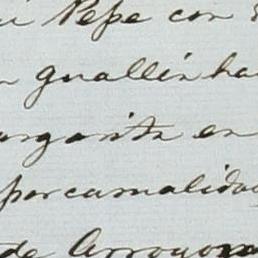 Pepe con
guallin ha
argarita en
por camalidad
de Arroyo